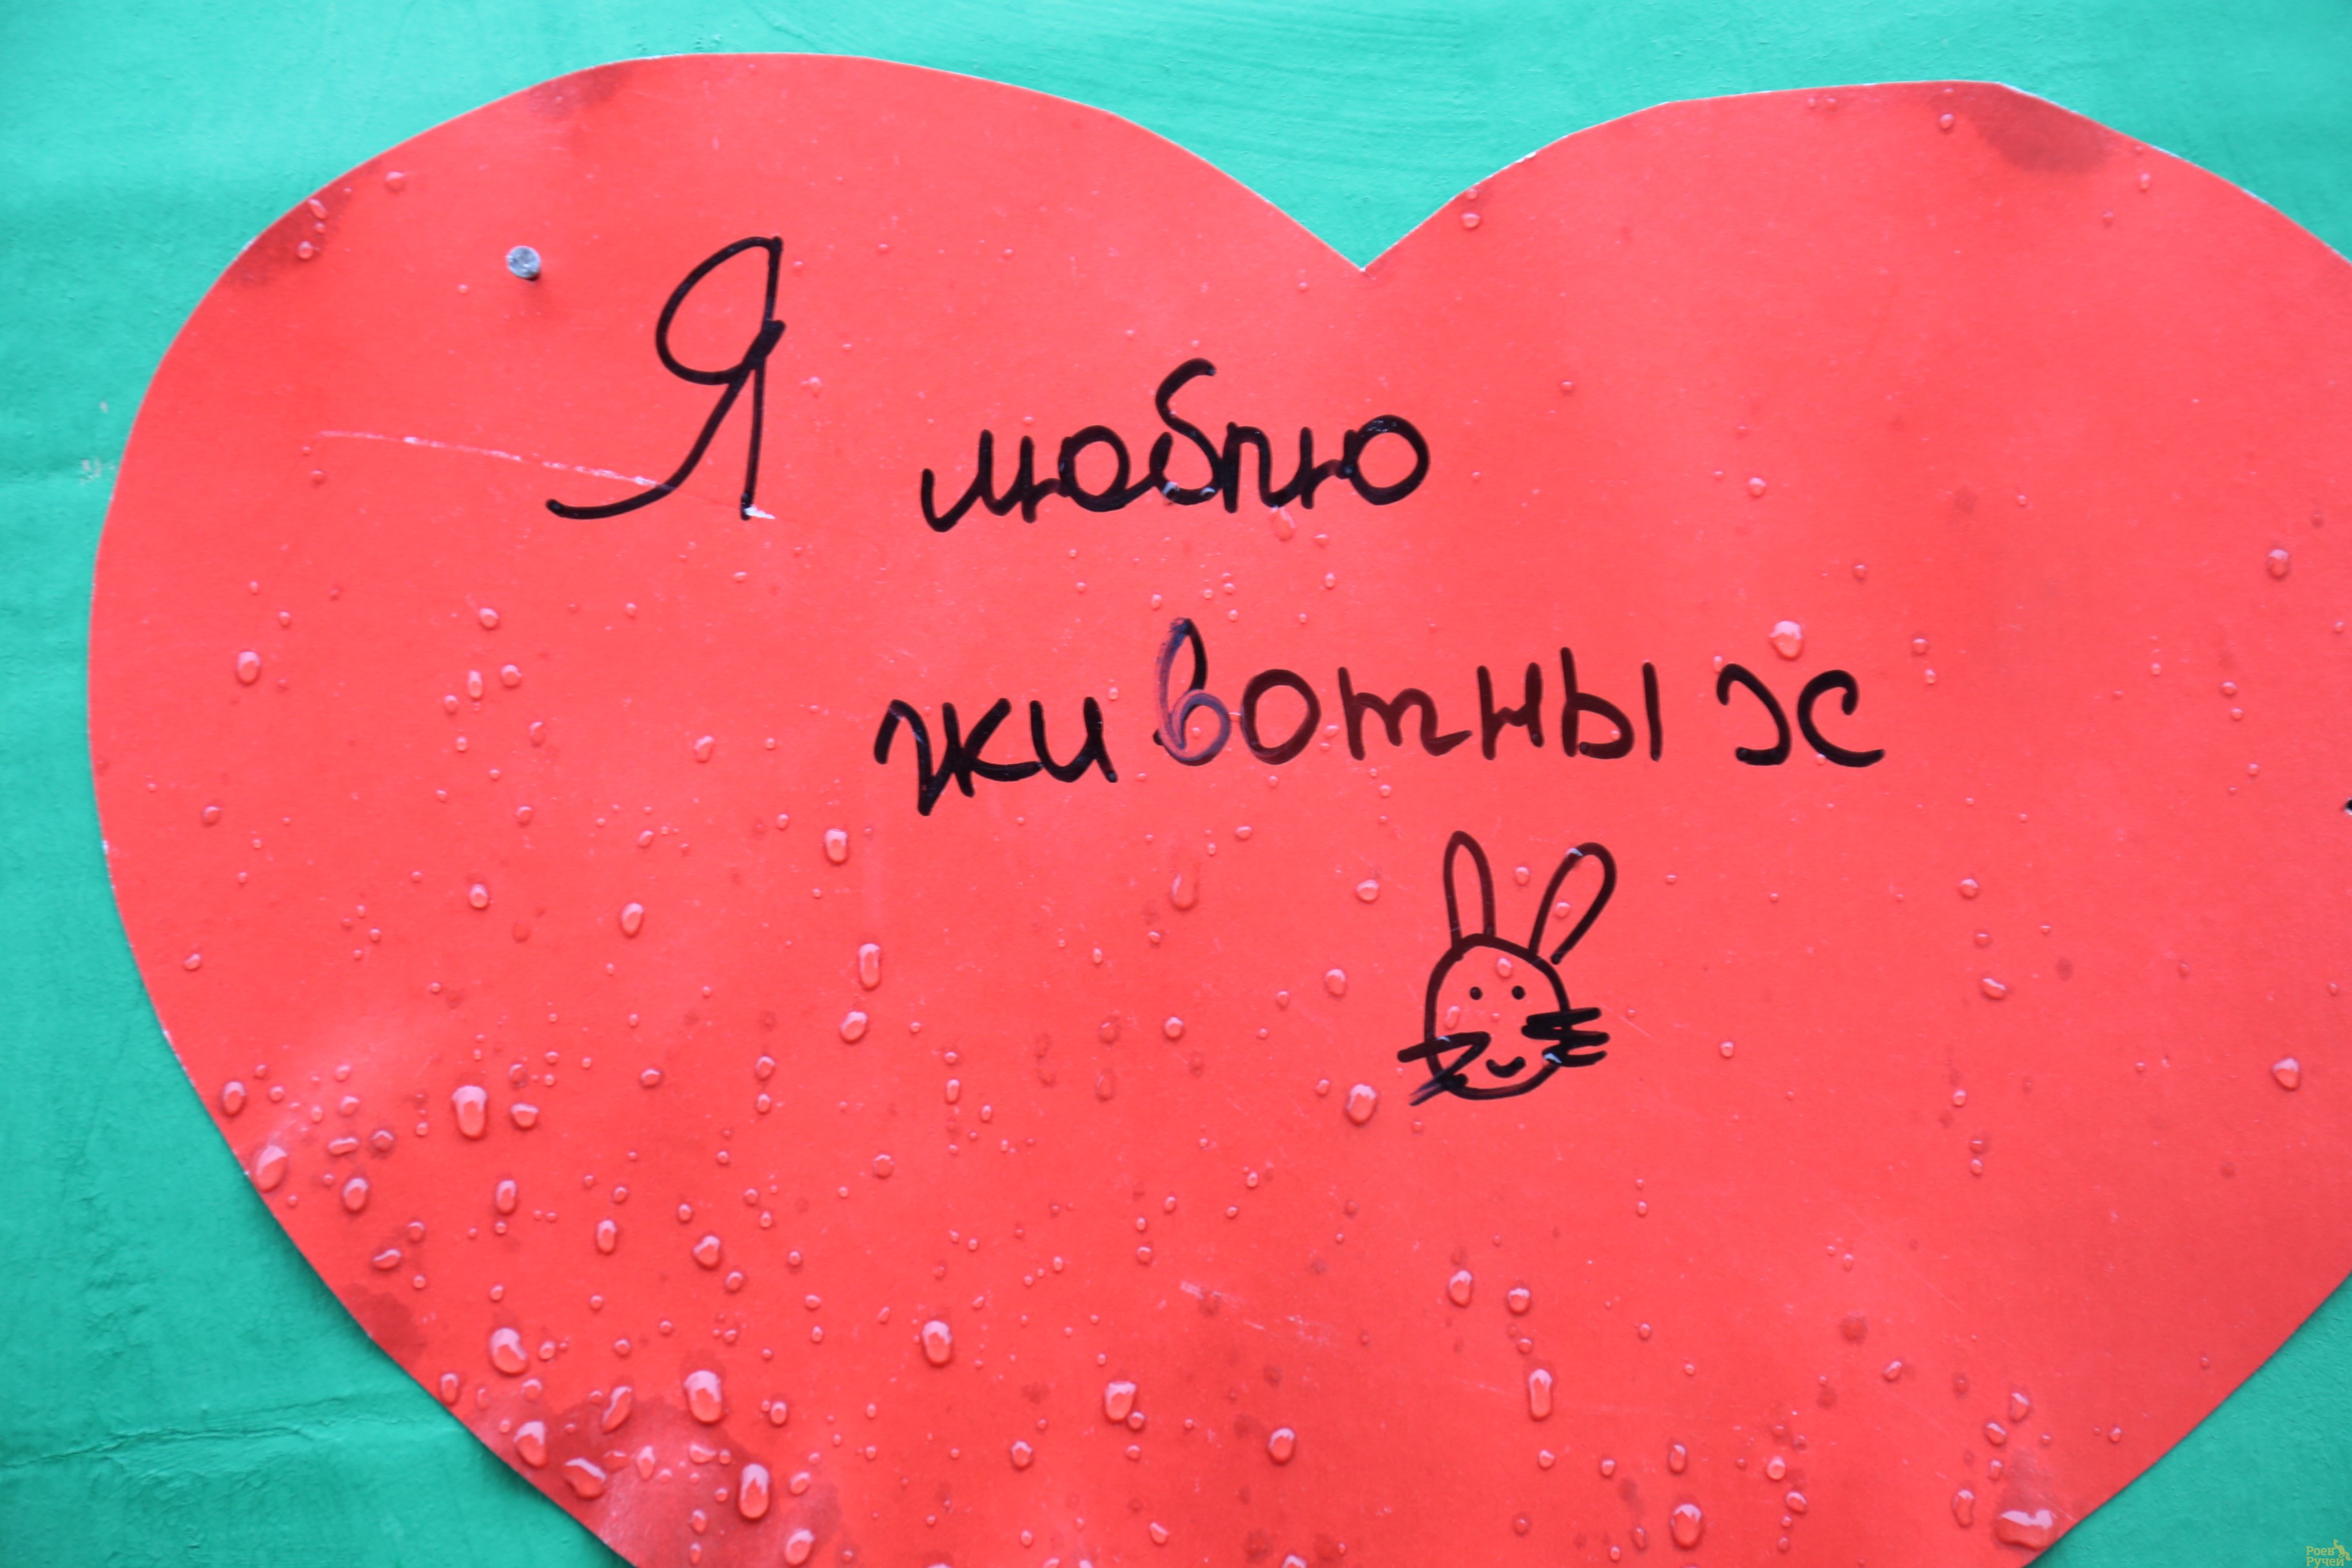 Я люблю
животных
Роев
Ручей